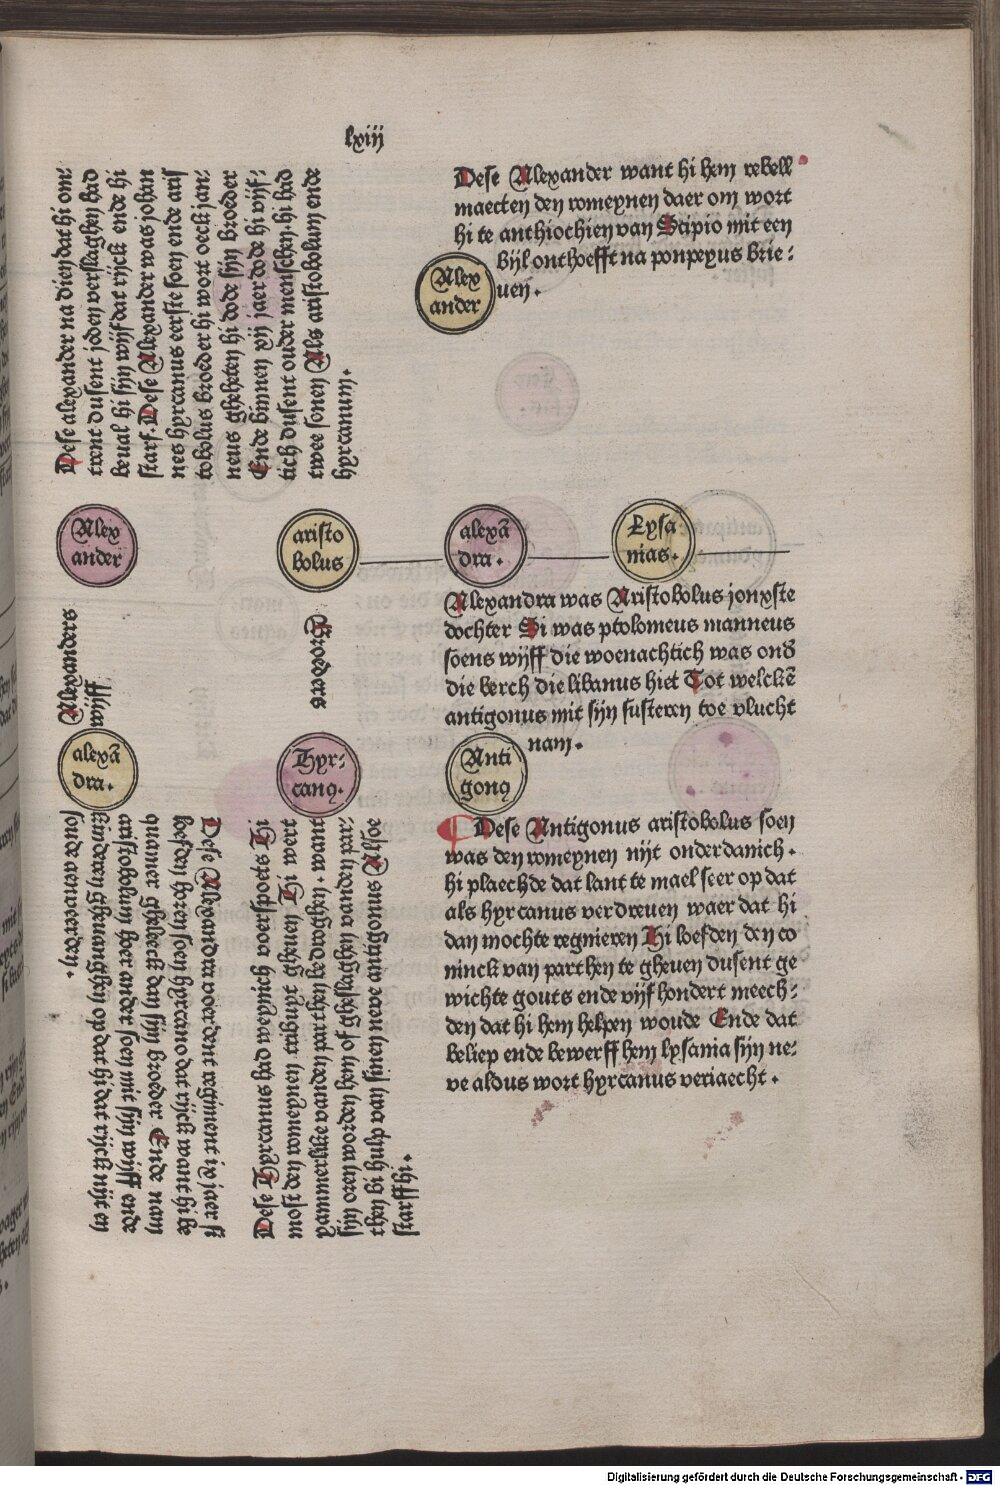 lxiij
Dese alexander na dien dat hi om⸗
trent dusent joden verslaghen had
beual hi sijn wijf dat rijck ende hi
starf. Dese Alexander was johan
nes hyrcanus eerste soen ende aris
tobolus broeder hi wort oeck jan⸗
neus gheheten hi dode sijn broeder
Ende binnen xij jaer dode hi vijf⸗
tich dusent ouder menschen. hi had
twee sonen Als aristobolum ende
hyrcanum.
Dese Alexander want hi hem rebell
maecten den romeynen daer om wort
hi te anthiochien van Scipio mit een
bijl onthoefft na ponpeyus brie⸗
uen.
Alex
ander
Alex
ander
aristo
bolus
alexā
dra.
Lysa
nias.
Alexanders
wijff
Broeders
Alexandra was Aristobolus jonxste
dochter Si was ptolomeus manneus
soens wijff die woenachtich was onď
die berch die libanus hiet Tot welckē
antigonus mit sijn susteren toe vlucht
nam.
alexā
dra.
Hyr⸗
canꝯ.
Anti
gonꝯ
Dese Alexandra voer dent regiment ix jaer si
loefden horen soen hyrcano dat rijck want hi be
quamer gheleeck dan sijn broeder Ende nam
aristobolum hoer ander soen mit sijn wijff ende
kinderen ghevanghen op dat hi dat rijck nijt en
sonde aenveerden.
Dese Hyrcanus had weynich voerspoets Hi
most den romeynen tribuyt gheuen Hi wert
yammerlike vanden parthen bedroghen. want
sijn oren worden hem of gheslaghen vanden
then bi hulp van sinen neve antigonus Alsoe
starff hi.
Dese Antigonus aristobolus soen
was den romeynen nijt onderdanich.
hi plaechde dat lant te mael seer op dat
als hyrcanus verdreuen waer dat hi
dan mochte regnieren Hi loefden den co
ninck van parthen te gheuen dusent ge
wichte gouts ende vijf hondert meech⸗
den dat hi hem helpen woude Ende dat
beliep ende bewerff hem lysania sijn ne⸗
ve aldus wort hyrcanus veriaecht.
Digitalisierung gefördert durch die Deutsche Forschungsgemeinschaft - DFG